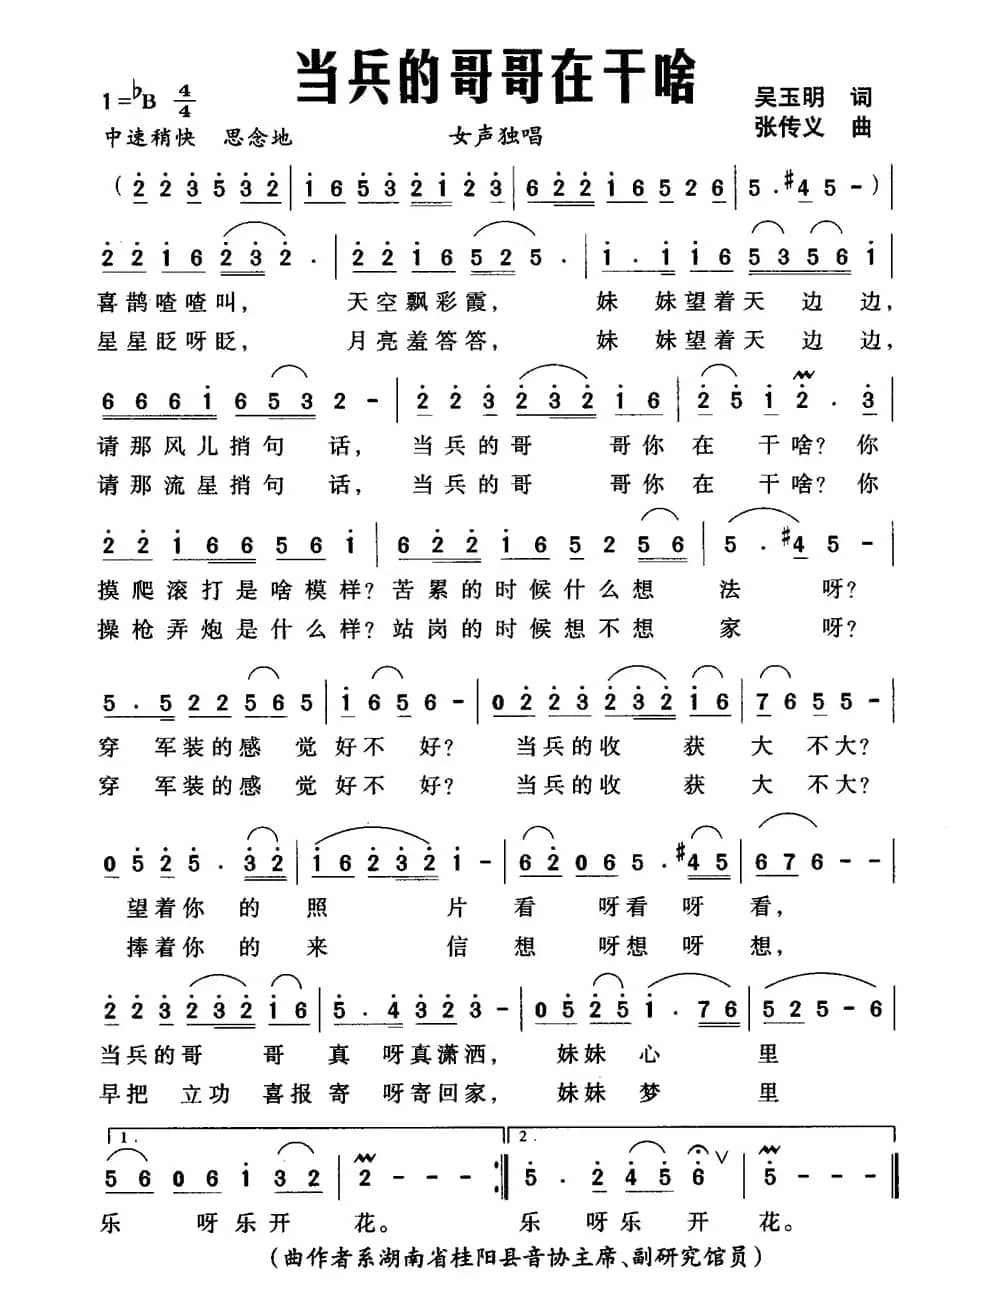 当兵的哥哥在干啥
1=♭B 4/4
吴玉明 词
张传义 曲
中速稍快 思念地
女声独唱
( 2 2 3 5 3 2 | 1 6 5 3 2 1 2 3 | 6 2 2 1 6 5 2 6 | 5 . #4 5 - ) |
2 2 1 6 2 3 2 . | 2 2 1 6 5 2 5 . | 1 . 1 1 6 5 3 5 6 1 |
喜鹊喳喳叫, 天空飘彩霞, 妹 妹望着天 边边,
星星眨呀眨, 月亮羞答答, 妹 妹望着天 边边,
6 6 6 1 6 5 3 2 - | 2 2 3 2 3 2 1 6 | 2 5 1 2 . 3 |
请那风儿捎句 话, 当兵的哥 哥你 在 干啥? 你
请那流星捎句 话, 当兵的哥 哥你 在 干啥? 你
2 2 1 6 6 5 6 1 | 6 2 2 1 6 5 2 5 6 | 5 . #4 5 - |
摸爬滚打是啥模样? 苦累的时候什么想 法 呀?
操枪弄炮是什么样? 站岗的时候想不想 家 呀?
5 . 5 2 2 5 6 5 | 1 6 5 6 - | 0 2 2 3 2 3 2 1 6 | 7 6 5 5 - |
穿 军装的感 觉好不 好? 当兵的收 获 大 不大?
穿 军装的感 觉好不 好? 当兵的收 获 大 不大?
0 5 2 5 . 3 2 | 1 6 2 3 2 1 - | 6 2 0 6 5 . #4 5 | 6 7 6 - - |
望着你 的 照 片 看 呀看 呀 看,
捧着你 的 来 信 想 呀想 呀 想,
2 2 3 2 3 2 1 6 | 5 . 4 3 2 3 - | 0 5 2 5 1 . 7 6 | 5 2 5 - 6 |
当兵的哥 哥 真 呀真潇洒, 妹妹 心 里
早把 立功 喜报寄 呀寄回家, 妹妹 梦 里
1. 2.
5 6 0 6 1 3 2 | 2 - - - :| 5 . 2 4 5 6 ∨ | 5 - - - |
乐 呀乐开 花。 乐 呀乐开 花。
(曲作者系湖南省桂阳县音协主席、副研究馆员)